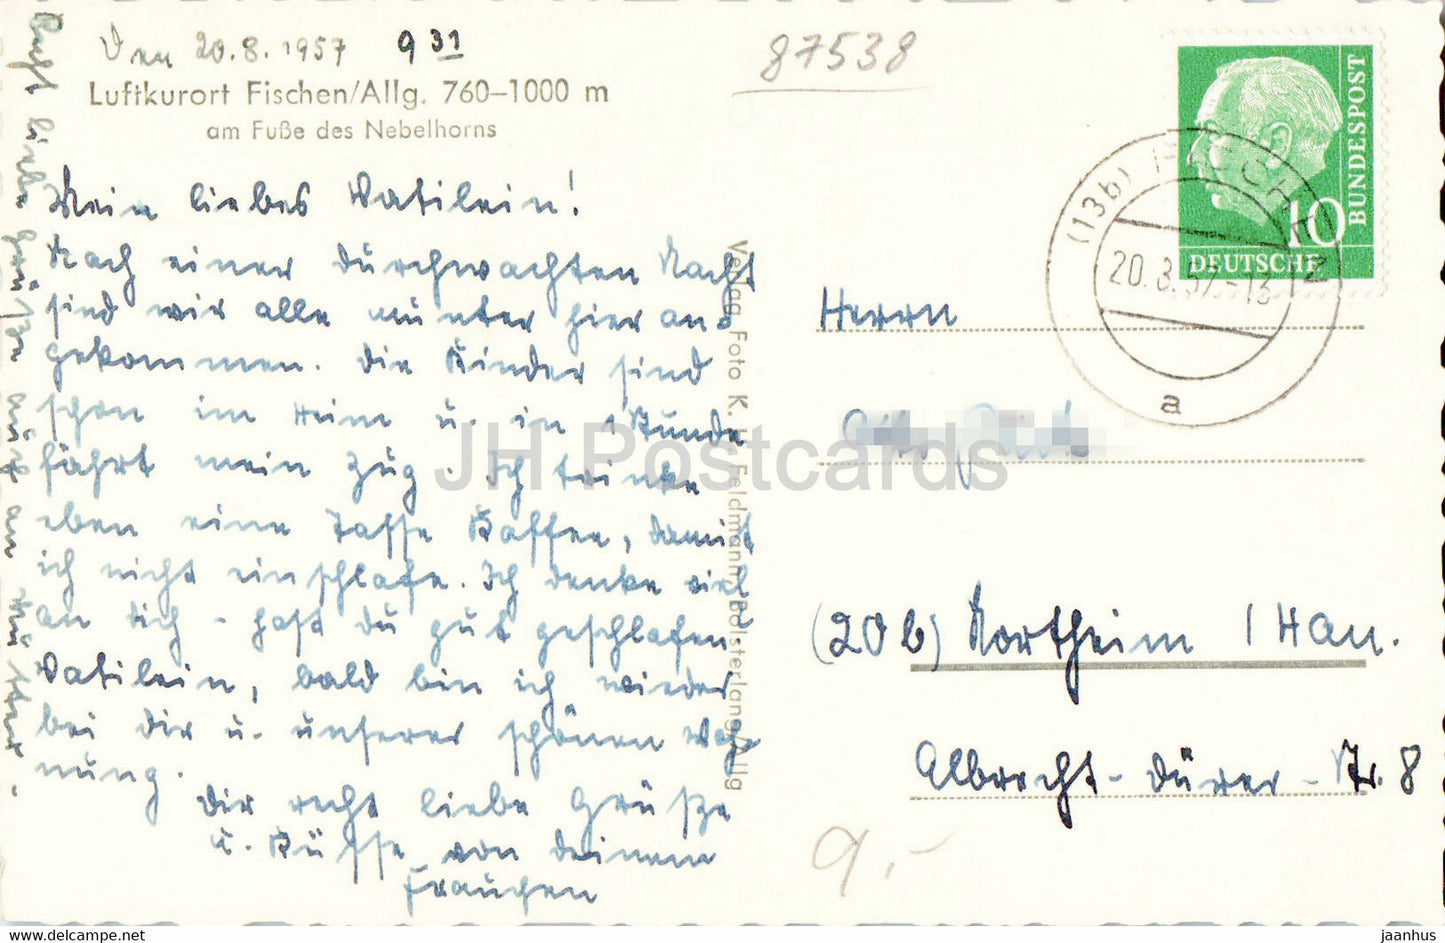 Den 20.8.1957 9 31
87538
Luftkurort Fischen/Allg. 760–1000 m
am Fuße des Nebelhorns
Mein liebes Vatilein!
Nach einer durchwachten Nacht
sind wir alle munter hier an
gekommen. Die Kinder sind
schon im Heim u. in 1 Stunde
fährt mein Zug. Ich trinke
eben eine Tasse Kaffee, damit
ich nicht einschlafe. Ich denke viel
an Dich - hast du gut geschlafen
Vatilein, bald bin ich wieder
bei dir u. unserer schönen Woh
nung.
Dir recht liebe Grüße
u. Küsse von deinem
Frauchen
Recht liebe Grüße auch an Mutter.
Verlag Foto K. H. Feldmann, Bolsterlang/Allg
BUNDESPOST
10
DEUTSCHE
(13b) FISCHEN
20.8.57-13
a
Herrn
(20b) Northeim / Han.
Albrecht-Dürer-Str. 8
9,-
JH Postcards
www.delcampe.net
jaanhus